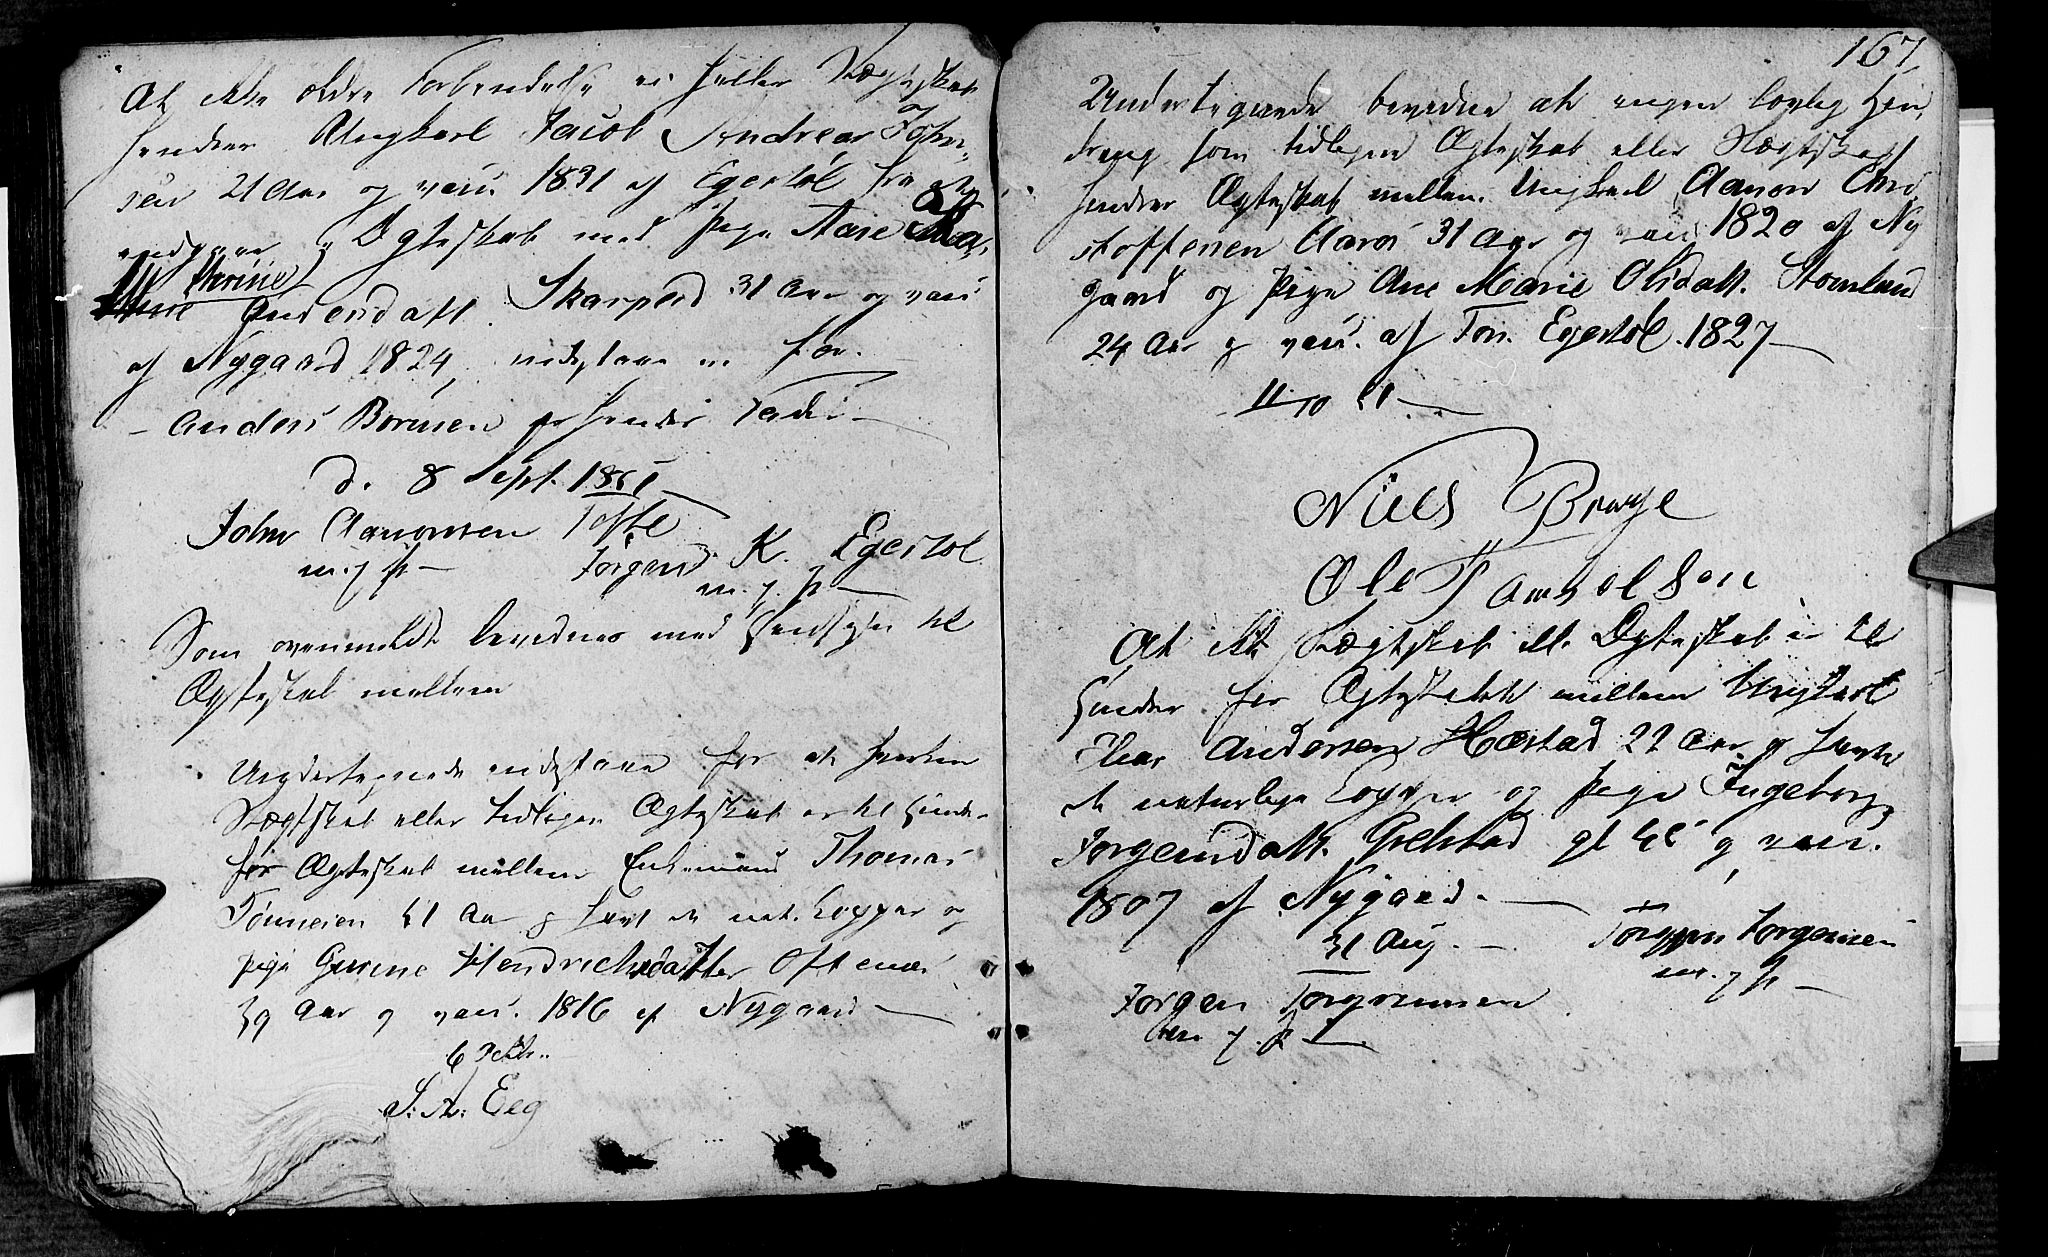 At ikke ældre Forbindelse ei heller Slægtskab
hindrer Ungkarl Jacob Andreas John
sen 21 Aar og vacc. 1831 af Egerstöl fra at
indgaae Ægteskab med Pige Aase
Andersdatt. Skarpød 31 Aar og vacc
af Nygaard 1824, indestaae vi for.
Anders Börresen er hendes Fader
d. 8 Sept. 1851
John Aanonsen Tofte
m. f. P
Jörgen K. Egerstöl
m. f. P
Som ovenmeldt bevidnes med Hensyn til
Ægteskab mellem
Undertegnede indestaae for at hverken
Slægtskab eller tidligere Ægteskab er til Hinder
for Ægteskab mellem Enkemand Thomas
Tönnesen 51 Aar og havt de nat. Kopper og
Pige Gurine Hendrichsdatter Oftenæs
39 Aar og vacc. 1816 af Nygaard
6 Octbr.
S. A. Eeg
167
Undertegnede bevidne at ingen lovlig Hin
dring som tidligere Ægteskab eller Slægtskab
hindrer Ægteskab mellem Ungkarl Aanon Chri
stoffersen Aarøs 31 Aar og vacc 1820 af Ny
gaard og Pige Ane Marie Olsdatt. Stomlund
24 Aar og vacc. af Jörn. Egerstöl 1827
11/10 51
Niels Brage
Ole Samuelson
At ikke Slægtskab ell. Ægteskab er til
Hinder for Ægteskab mellem Ungkarl
Elias Andersen Hæstad 22 Aar og havt
de naturlige Kopper og Pige Ingeborg
Jörgensdatt. Gelstad gl 45 og vacc.
1807 af Nygaard.
31 Aug.
Jörgen Jörgensen
m. f. P
Jörgen Torgrimsen
m. f. P